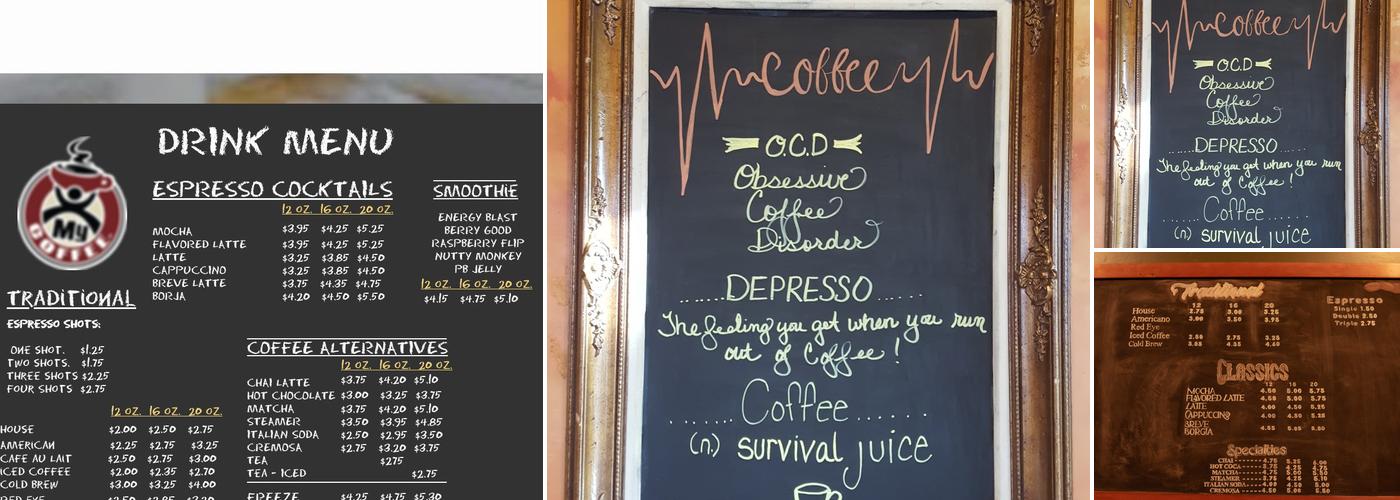 DRINK MENU
My
COFFEE
ESPRESSO COCKTAILS
12 OZ. 16 OZ. 20 OZ.
MOCHA $3.95 $4.25 $5.25
FLAVORED LATTE $3.95 $4.25 $5.25
LATTE $3.25 $3.85 $4.50
CAPPUCCINO $3.25 $3.85 $4.50
BREVE LATTE $3.75 $4.35 $4.75
BORJA $4.20 $4.50 $5.50
SMOOTHIE
ENERGY BLAST
BERRY GOOD
RASPBERRY FLIP
NUTTY MONKEY
PB JELLY
12 OZ. 16 OZ. 20 OZ.
$4.15 $4.75 $5.10
TRADITIONAL
ESPRESSO SHOTS:
ONE SHOT. $1.25
TWO SHOTS. $1.75
THREE SHOTS $2.25
FOUR SHOTS $2.75
12 OZ. 16 OZ. 20 OZ.
HOUSE $2.00 $2.50 $2.75
AMERICAN $2.25 $2.75 $3.25
CAFE AU LAIT $2.50 $2.75 $3.00
ICED COFFEE $2.00 $2.35 $2.70
COLD BREW $3.00 $3.25 $4.00
RED EYE
COFFEE ALTERNATIVES
12 OZ. 16 OZ. 20 OZ.
CHAI LATTE $3.75 $4.20 $5.10
HOT CHOCOLATE $3.00 $3.25 $3.75
MATCHA $3.75 $4.20 $5.10
STEAMER $3.50 $3.95 $4.85
ITALIAN SODA $2.50 $2.95 $3.50
CREMOSA $2.75 $3.20 $3.75
TEA $275
TEA - ICED $2.75
FREEZE $4.25 $4.75 $5.30
coffee
O.C.D
Obsessive
Coffee
Disorder
......DEPRESSO......
The feeling you get when you run
out of Coffee!
.......Coffee......
(n) survival juice
coffee
O.C.D
Obsessive
Coffee
Disorder
......DEPRESSO......
The feeling you get when you run
out of Coffee!
.......Coffee......
(n) survival juice
Traditional
12 16 20
House 2.75 3.00 3.25
Americano 3.00 3.50 3.95
Red Eye
Iced Coffee 2.50 2.75 3.25
Cold Brew 3.85 4.35 4.69
Espresso
Single 1.50
Double 2.50
Triple 2.75
CLASSICS
12 16 20
MOCHA 4.50 5.00 5.75
FLAVORED LATTE 4.50 5.00 5.75
LATTE 4.00 4.50 5.25
CAPPUCCINO 4.00 4.50 5.25
BREVE
BORGIA
Specialties
CHAI 4.75 5.25 6.00
HOT COCOA 3.75 4.25 4.75
MATCHA
STEAMER
ITALIAN SODA
CREMOSA